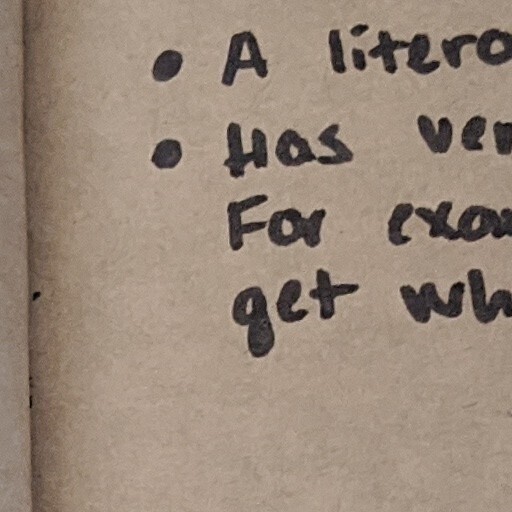 • A litera
• Has ver
For exam
get wh